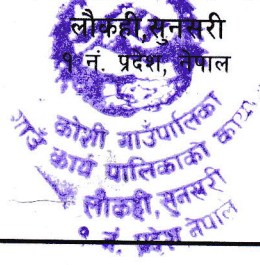 लौकही,सुनसरी
१ नं. प्रदेश, नेपाल
कोशी गाउँपालिका
गाउँ कार्य पालिकाको कार्या
लौकही, सुनसरी
१ नं. प्रदेश नेपाल